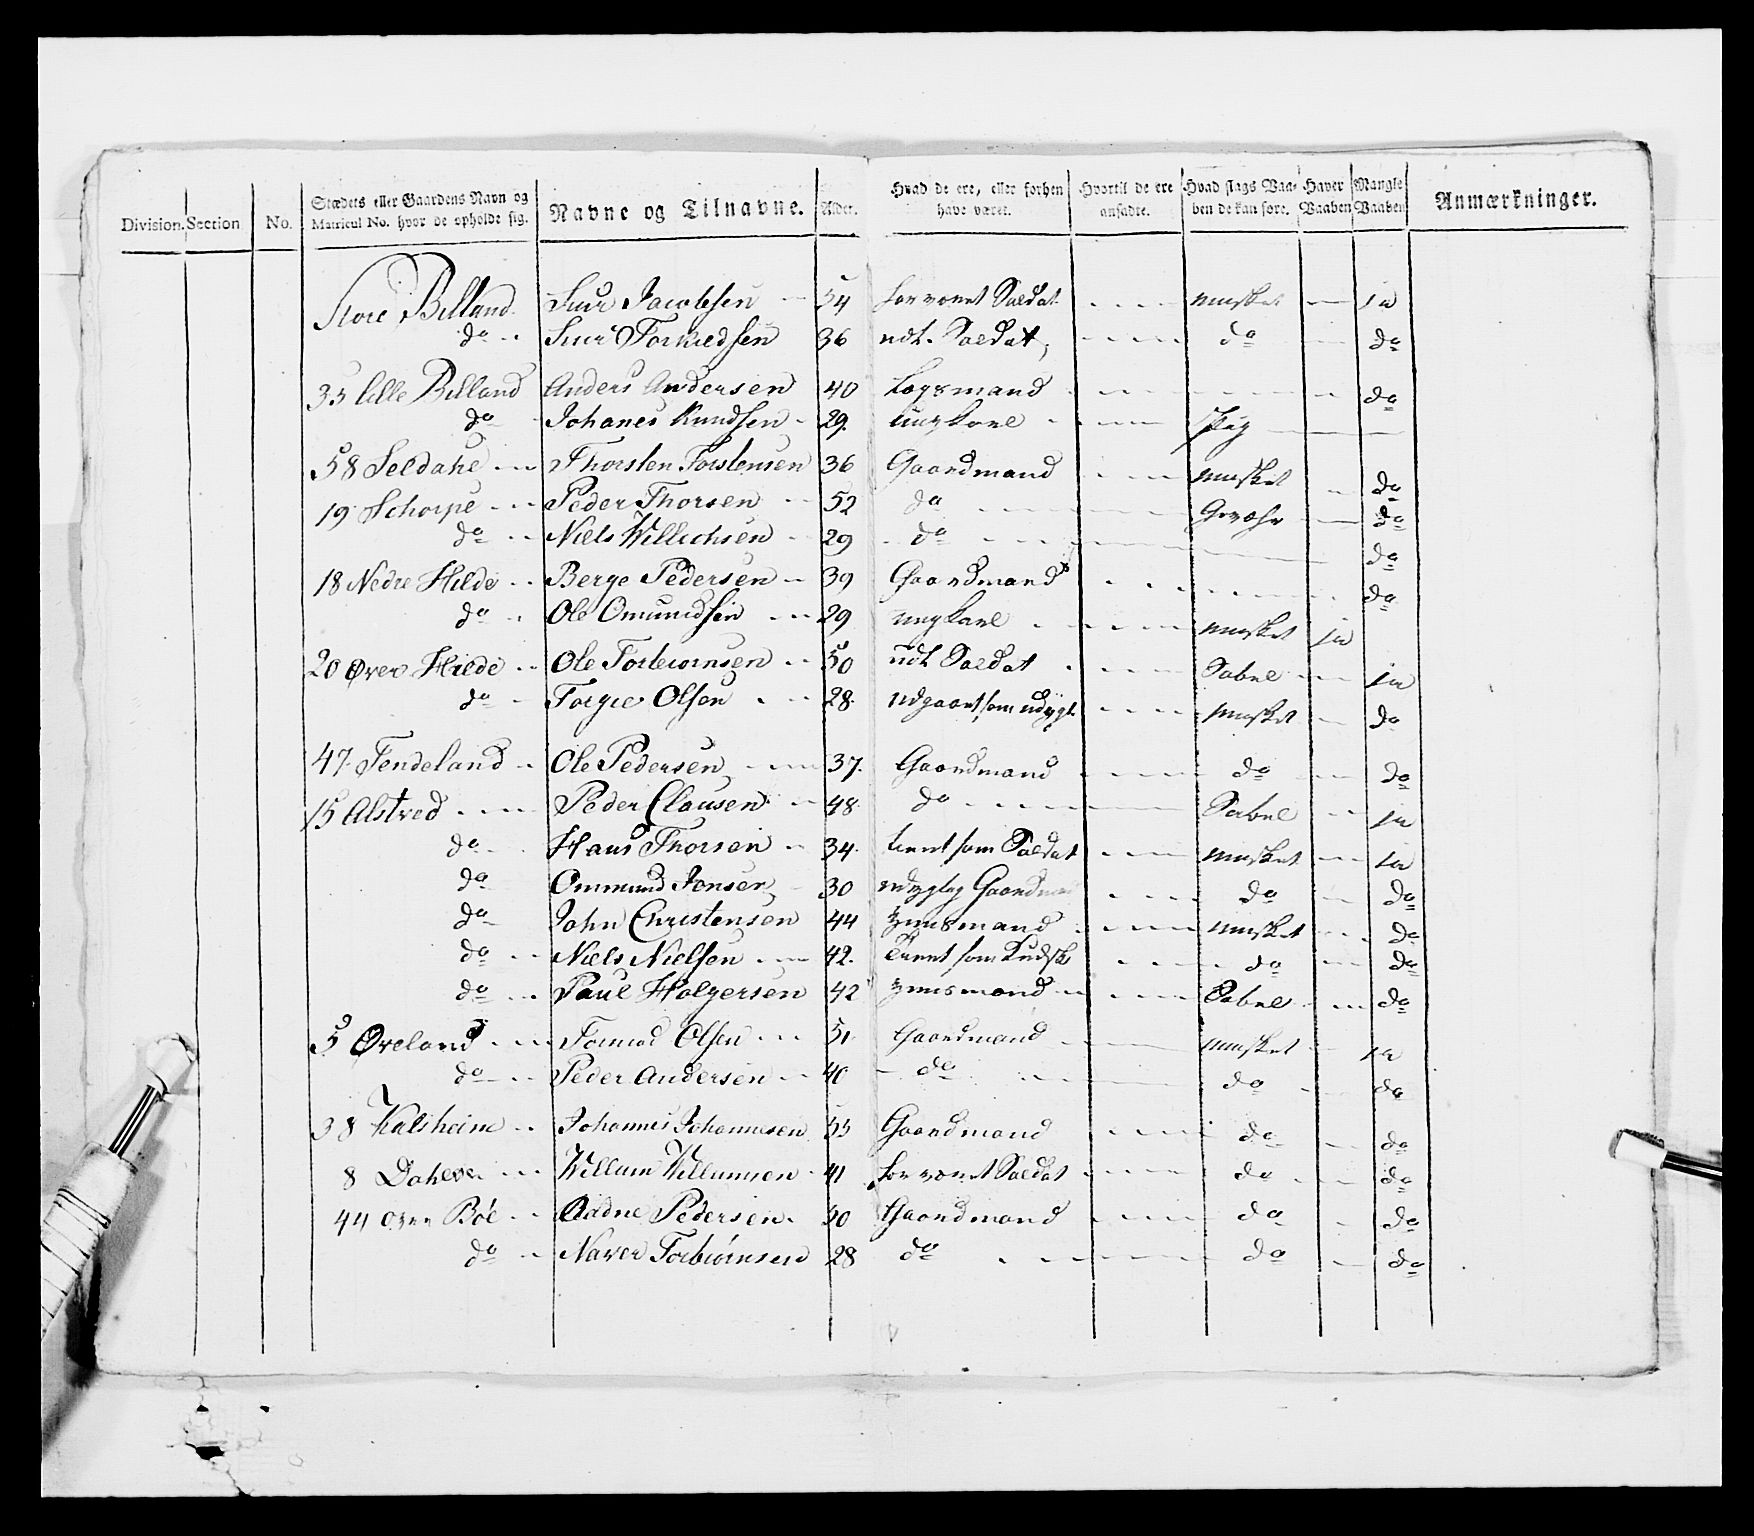 Division. Section No. Stædets eller Gaardens Navn og Matricul No. hvor de opholde sig. Navne og Tilnavne. Alder. Hvad de ere, eller forhen have været. Hvortil de ere ansadte. Hvad slags Vaaben de kan føre. Haver Vaaben Mangle Vaaben Anmærkninger.
Store Billand Jacobsen 54 forværet Soldat musket ja
do 36 udt. Soldat do do
35 lille Billand Anders Andersen 40 Logsmand do
do Johanes Knudsen 29. ungkarl
58 Seldahl Thorsten Torstensen 36 Gaardmand musket do
19 Schorpe Peder Thorsen 52 do Gevæhr do
do Niels Willichsen 29 do do
18 Nedre Hilde Berge Pedersen 39 Gaardmand do
do Ole Omundsen 29 ungkarl musket ja
20 Øvre Hilde Ole Torbiørnsen 50 udt Soldat Sabel ja
do Torger Olsen 28 udgaaet som udygt. musket do
47. Tendeland Ole Pedersen 37. Gaardmand do do
15 Alstved Peder Clausen 48 do Sabel ja
do Hans Thorsen 34 tient som Soldat musket ja
do Ommund Jonsen 30 udygtig do do
do John Christensen 44 huusmand musket do
do Niels Nielsen 42. tient som Kudsk do do
do Paul Holgersen 42 huusmand Sabel do
5 Øveland Olsen 51 Gaardmand musket ja
do Peder Andersen 40 do do do
38 Kalsheim Johannes Johannesen 55 Gaardmand do do
8 Willum Willumsen 41 forværet Soldat do do
44 Øvre Bøe Aadne Pedersen 40 Gaardmand do do
do Torbiørnsen 28 do do do